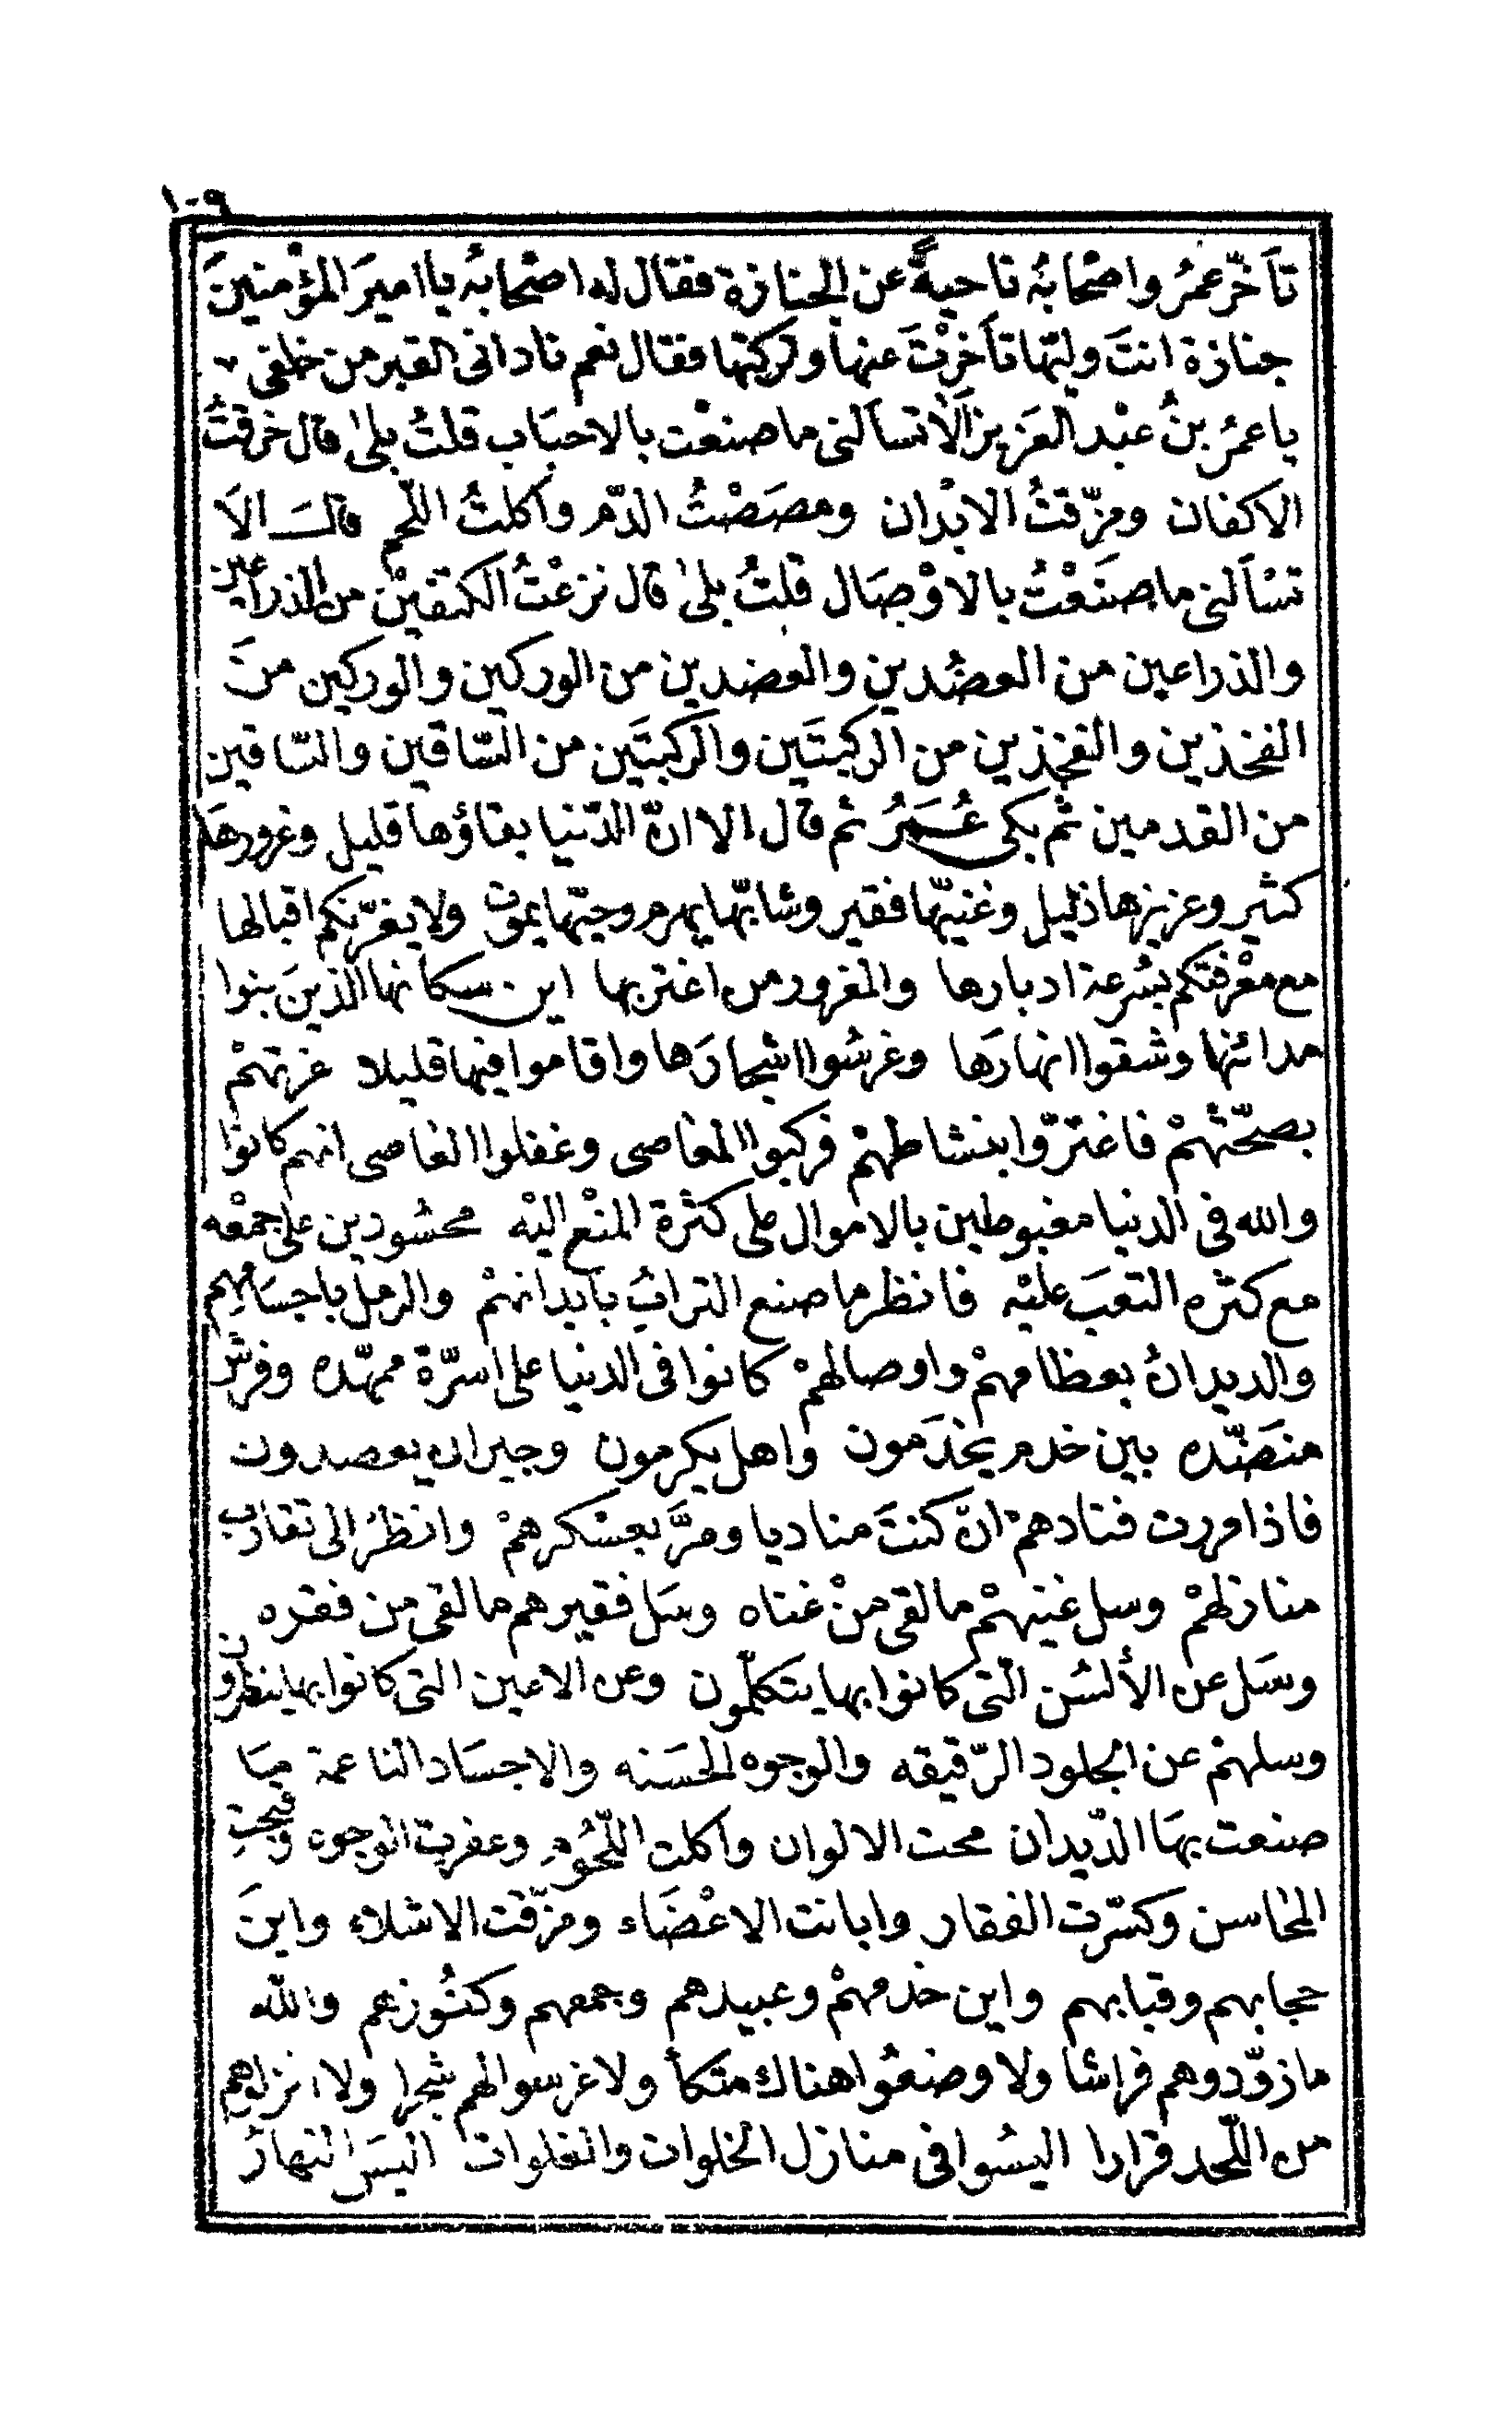 ١٠٩
تأخّر عمرُ واصْحابهُ ناحيةً عن الجنازة فقال له اصْحابهُ يا اميرَ المؤْمنينَ
جنازة انتَ وليّها تأخرْتَ عنها وتركتها فقال نعم نادانى القبر من خلفى
يا عمرُ بنُ عبْد العَزيز اَلَا تسأَلنى ما صنعْت بالاحبَاب قلتُ بلىٰ قال خرقتُ
الاكفان ومزّقتُ الابْدان ومصَصْتُ الدّم واكلتُ اللّحم قال الَا
تسْألنى ما صنَعْتُ بالاوْصَال قلتُ بلىٰ قال نزعْتُ الكتفيْن من الذراعين
والذراعين من العضُدين والعضدين من الوركين والوركين منَ
الفخذين والفخذين من الركبتَين والركبتَين من السّاقين والسّاقين
من القدمين ثم بكى عُمَرُ ثم قال الا انّ الدّنيا بقاؤها قليل وغرورهَا
كثير وعزيزها ذليل وغنيّها فقير وشابّها يهرم وحيّها يموت ولا يغرّنكم اقبالها
مع معْرفتكم بسُرعة ادبارها والمغرور من اغتر بها اين سكانها الذينَ بنوا
مدائنها وشقوا انهارَها وغرسُوا اشجارَها واقاموا فيها قليلا غرتهمْ
بصحّتهمْ فاغترّوا بنشاطهمْ فركبوا المعَاصى وغفلوا العاصى انهم كانوا
والله فى الدنيا مغبوطين بالاموال على كثرة المنْع اليْه محشودين على جمْعه
مع كثره التعَب عليْه فانظر ما صنع الترابُ بابدانهمْ والرمل باجسَامهم
والديدانُ بعظامهمْ واوصالهمْ كانوا فى الدنيا على اسرّة ممهّده وفرش
منضّده بين خدم يخدَمون واهل يكرمون وجيران يعصدون
فاذا مررت فنادهمْ انّ كنتَ مناديا ومرَّ بعسْكرهمْ وانظرْ الى تقارُب
منازلهمْ وسل غنيهمْ ما لقى منْ غناه وسَل فقيرهم ما لقى من فقره
وسَل عن الألسُن الّتى كانوا بها يتكلّمون وعن الاعين التى كانوا بها ينظرون
وسلهمْ عن الجلود الرّقيقه والوجوه الحسَنه والاجسَاد الناعمة مَا
صنعت بهَا الدّيدان محت الالوان واكلت اللّحُوم وعفرت الوجوه وقبحت
المحاسن وكسّرت الفقار وابانت الاعْضَاء ومزّقت الاشلاء واينَ
حجابهم وقبابهم واين خدمهمْ وعبيدهم وجمعهم وكنُوزهم والله
ما زوّدوهم فراشا ولا وضعُوا هناك متكأ ولا غرسوا لهم شجرا ولا انزلوهم
من اللّحد قرارا اليسُوا فى منازل الخلوات والفلوات اليسَ النهارُ